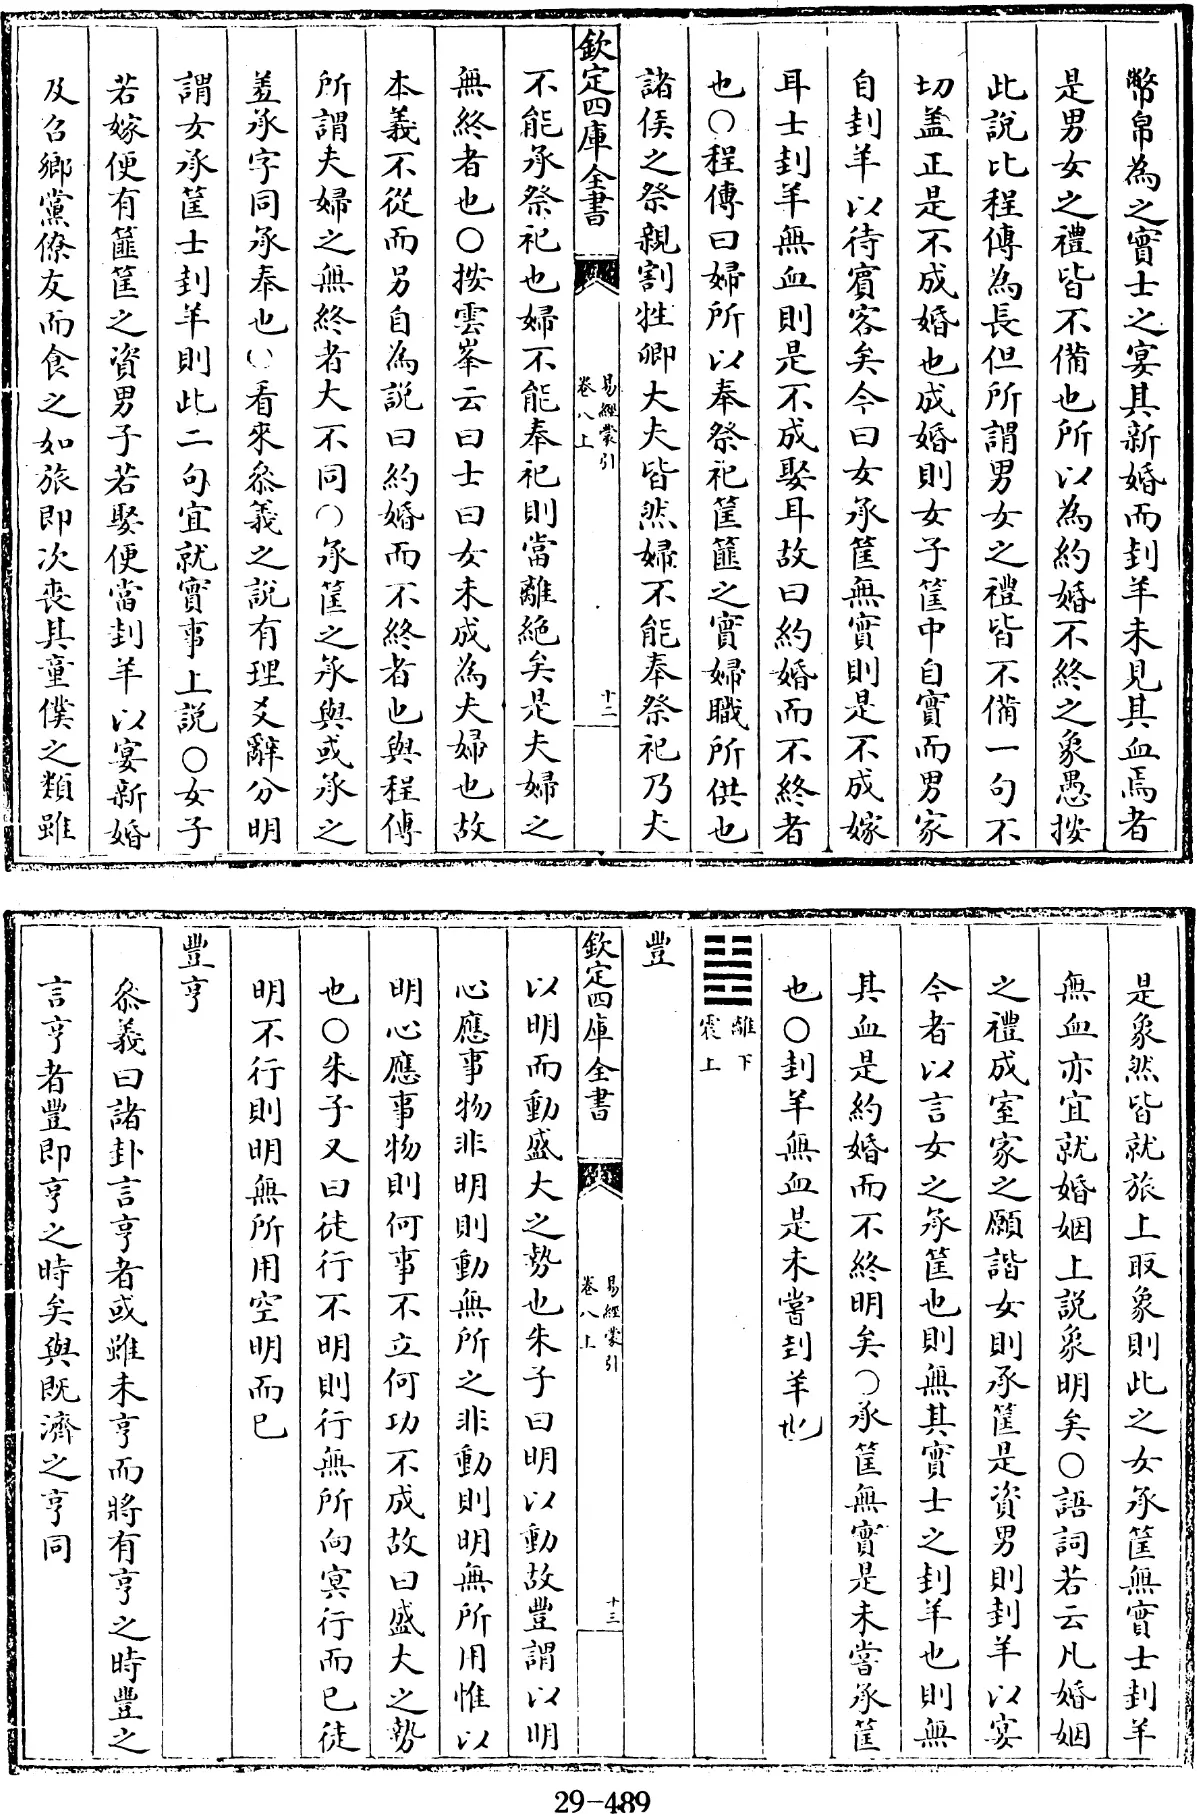 幣帛為之實士之宴其新婚而刲羊未見其血焉者
是男女之禮皆不備也所以為約婚不終之象愚按
此說比程傳為長但所謂男女之禮皆不備一句不
切盖正是不成婚也成婚則女子筐中自實而男家
自刲羊以待賓客矣今曰女承筐無實則是不成嫁
耳士刲羊無血則是不成娶耳故曰約婚而不終者
也○程傳曰婦所以奉祭祀筐篚之實婦職所供也
諸侯之祭親割牲卿大夫皆然婦不能奉祭祀乃夫
欽定四庫全書
易經蒙引
卷八上
十二
不能承祭祀也婦不能奉祀則當離絶矣是夫婦之
無終者也○按雲峯云曰士曰女未成為夫婦也故
本義不從而另自為說曰約婚而不終者也與程傳
所謂夫婦之無終者大不同○承筐之承與或承之
羞承字同承奉也○看來叅義之說有理爻辭分明
謂女承筐士刲羊則此二句宜就實事上説○女子
若嫁便有篚筐之資男子若娶便當刲羊以宴新婚
及召鄉黨僚友而食之如旅即次喪其童僕之類雖
是象然皆就旅上取象則此之女承筐無實士刲羊
無血亦宜就婚姻上説象明矣○語詞若云凡婚姻
之禮成室家之願諧女則承筐是資男則刲羊以宴
今者以言女之承筐也則無其實士之刲羊也則無
其血是約婚而不終明矣○承筐無實是未嘗承筐
也○刲羊無血是未嘗刲羊也
離下
震上
豐
欽定四庫全書
易經蒙引
卷八上
十三
以明而動盛大之勢也朱子曰明以動故豐謂以明
心應事物非明則動無所之非動則明無所用惟以
明心應事物則何事不立何功不成故曰盛大之勢
也○朱子又曰徒行不明則行無所向冥行而已徒
明不行則明無所用空明而已
豐亨
叅義曰諸卦言亨者或雖未亨而將有亨之時豐之
言亨者豐即亨之時矣與既濟之亨同
29-489